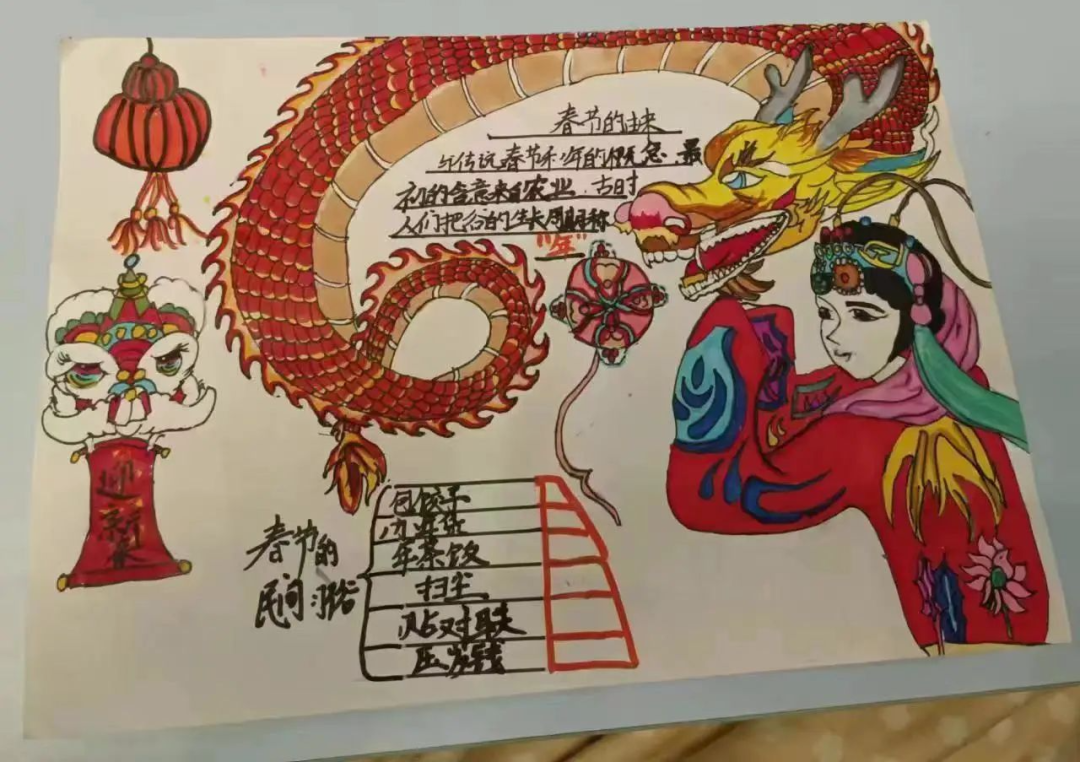 春节的由来
年传说春节和年的概念最
初的含意来自农业.古时
人们把谷的生长周期称
"年"
迎新春
春节的
民间习俗
包饺子
办年货
年茶饭
扫尘
贴对联
压岁钱